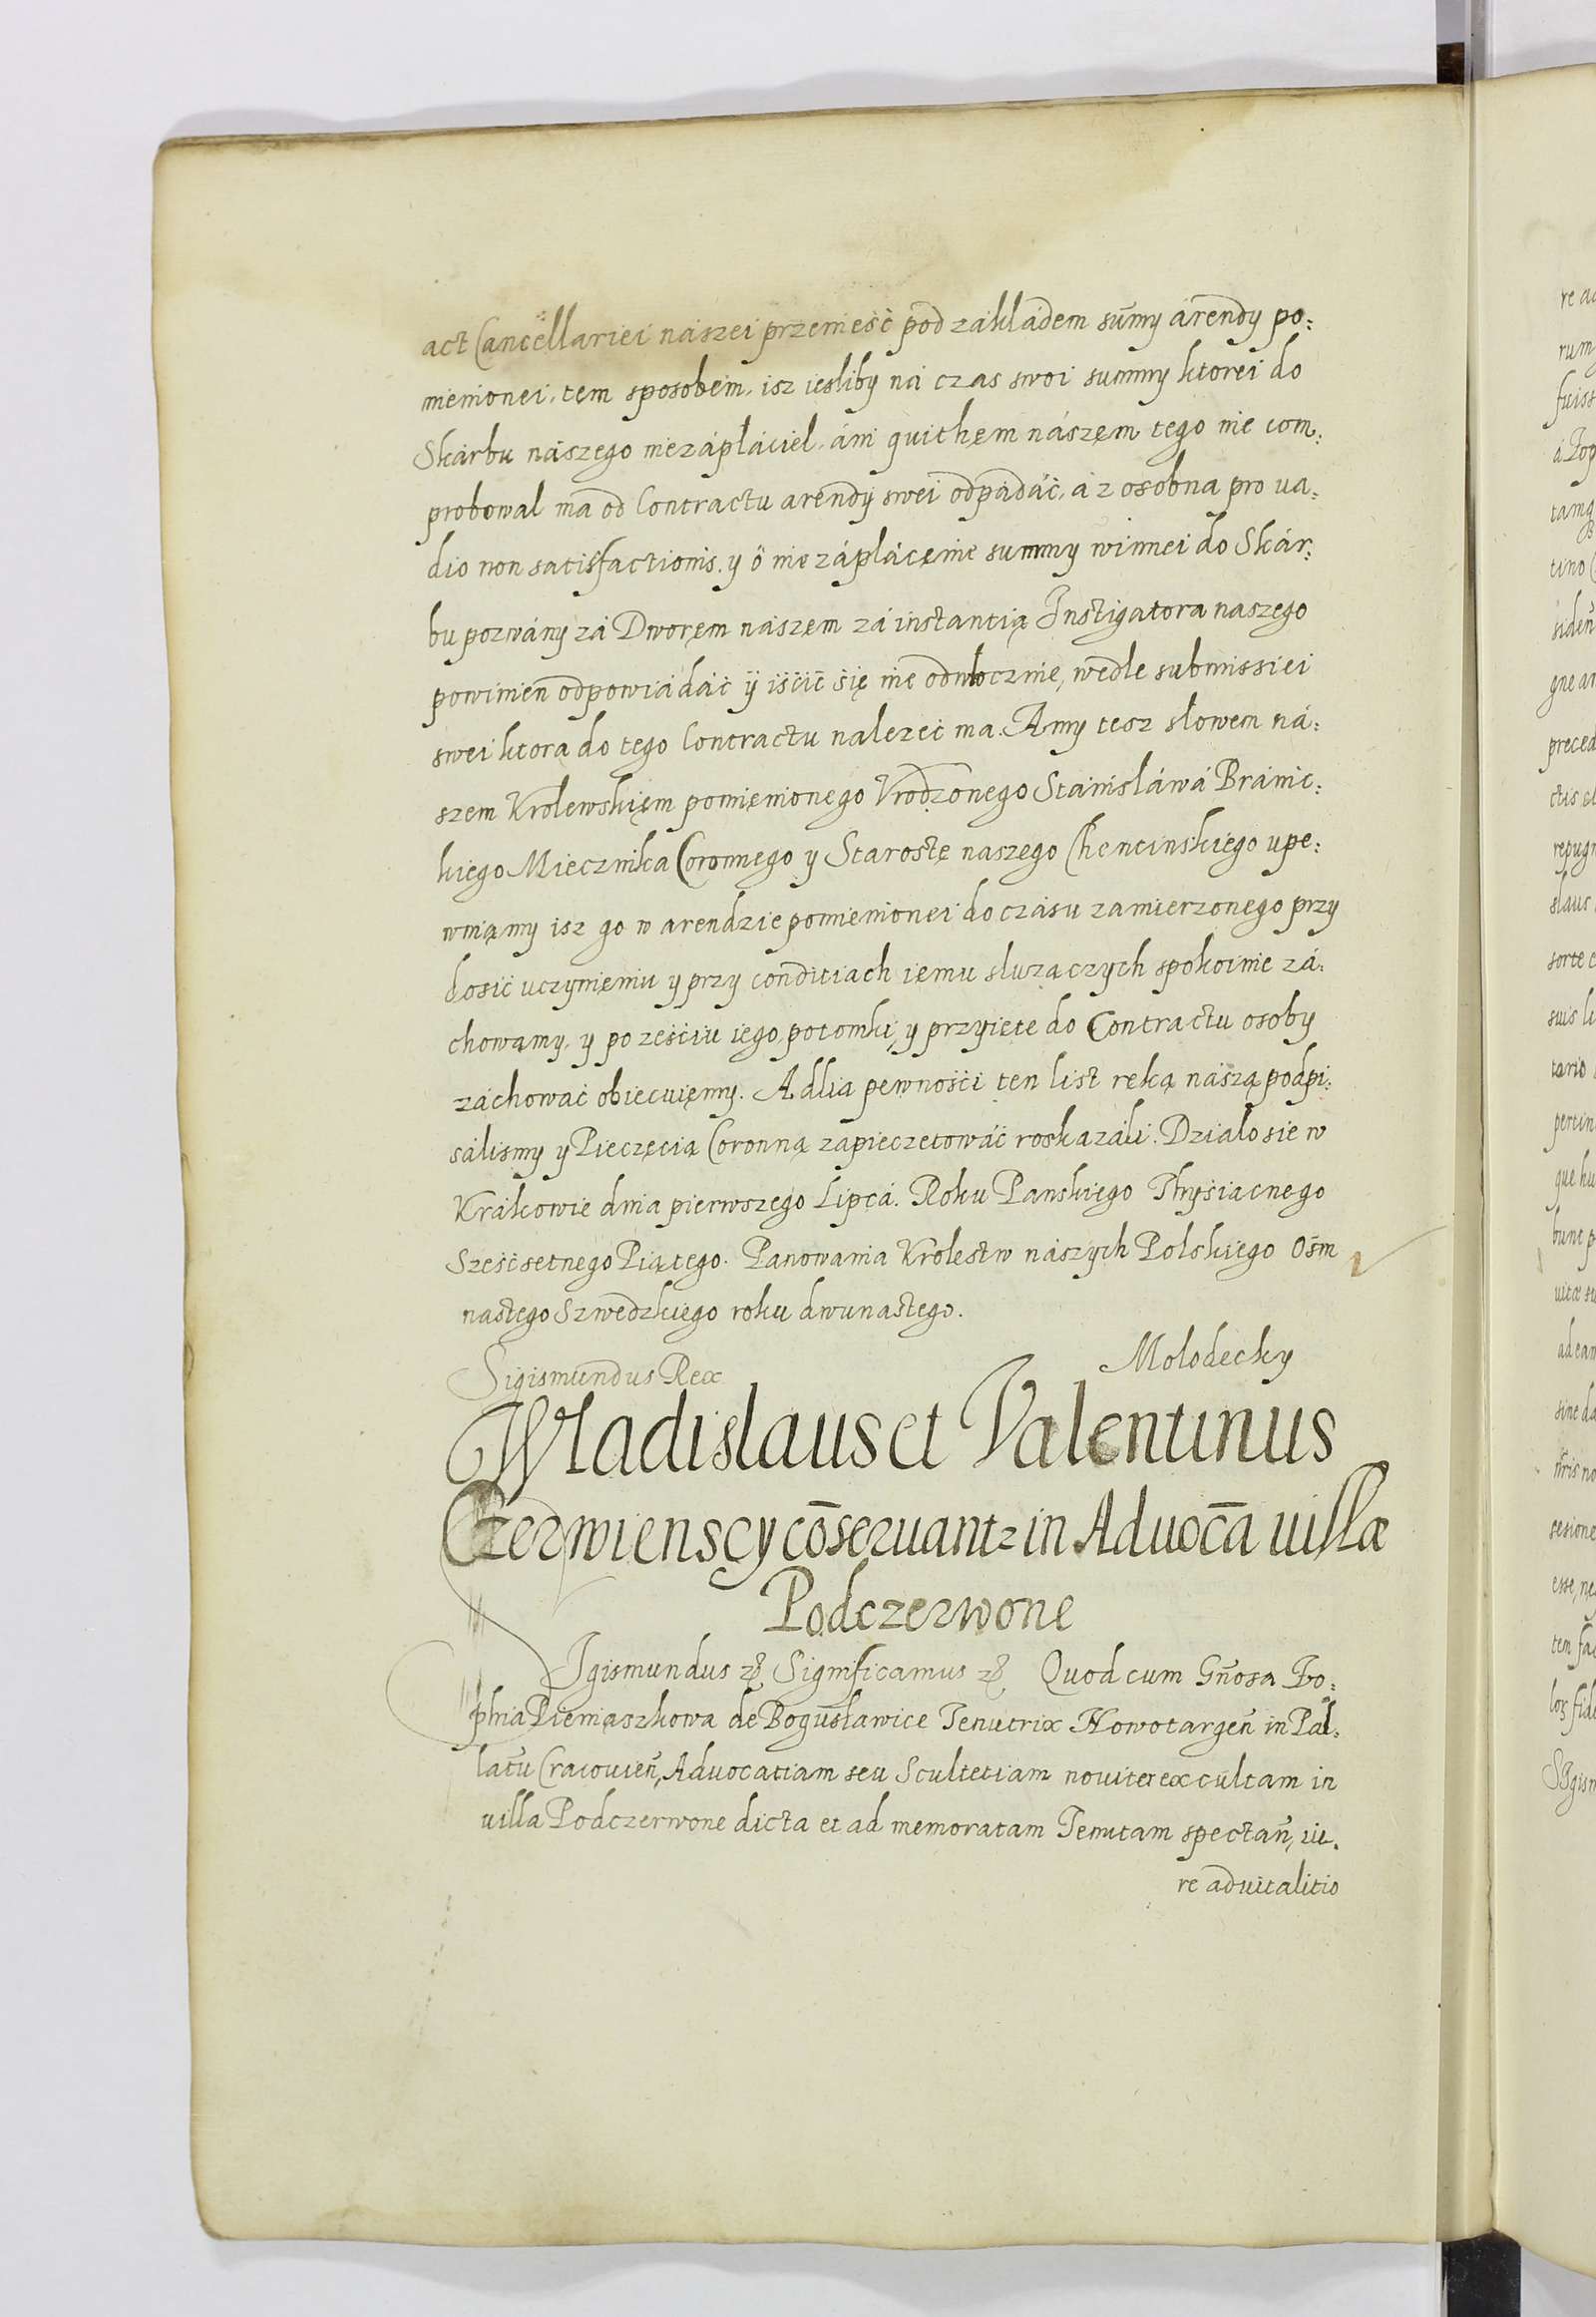 act Cancellariei nászei przenieść pod zakładem sum̄y árendy po:
mienionei, tem sposobem, isz iesliby na czas swoi summy ktorei do
Skárbu nászego niezápłáciel, áni quithem nászem tego nie com:
probowal ma od Contractu arendy swei odpádáć, á z osobna pro ua:
dio non satisfactionis, y ö nie zápłácenie summy winnei do Skár:
bu pozwány zá Dworęm nászem zá instantią Instigatora naszego
powinien odpowiádáć ÿ iśćić się nie odwłocznie, wedle submissiei
swei ktora do tego Contractu nalezeć ma. A my tesz słowem ná:
szem Krolewskięm pomięnionego Vrodzonego Stanisláwá Bránic:
kiego Miecznika Coronnego y Starostę naszego Chencinskiego upe:
wniąmy isz go w arendzie pomienionei do czásu zamierzonego przy
dosić uczynięniu y przy conditiach iemu słuzączych spokoinie zá:
chowamy, y po ześciu iego potomki y przyięte do Contractu osoby
záchowáć obiecuięmy. A dlia pewności ten list ręką nászą podpi:
sálismy y Pieczęcią Coronną zápieczetowáć roskazáli. Działo sie w
Krákowie dnia pierwszego Lipcá. Roku Panskiego Thysiacnego
Sześćsetnego Piątego. Panowania Krolestw nászych Polskiego Ośm
nastego Szwedzkiego roku dwunastego.
Sigismundus Rex Molodecky
Wladislaus et Valentinus
Czerwienscy cōseruantz in Aduocā uillæ
Podczerwone
Sigismundus &c Significamus &c Quod cum Gn̄osa Zo:
phia Pieniąszkowa de Bogusławice Tenutrix Nowotargen̄ in Pal:
latū Cracouien̄, Aduocatiam seu Scultetiam nouiter excultam in
uilla Podczerwone dicta et ad memoratam Tenutam spectan̄, iu:
re aduitalitio